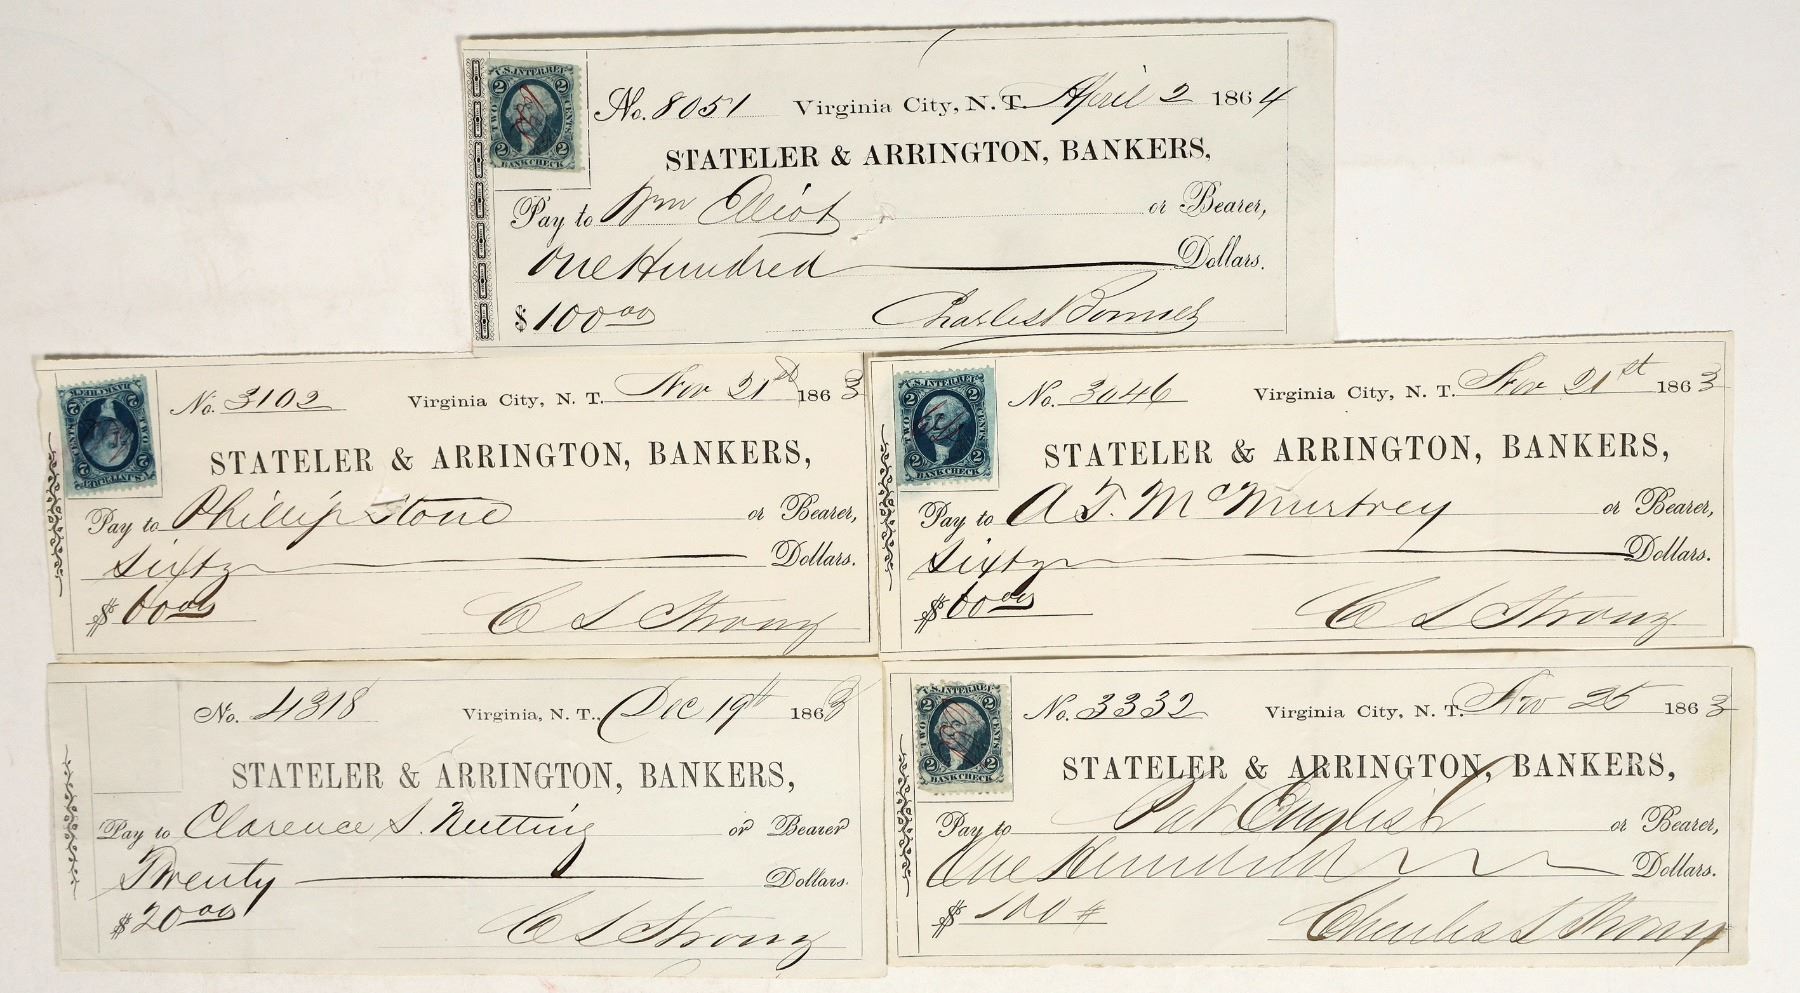 U.S. INTER. REV.
2 2
TWO CENTS
2 2
BANK CHECK
No. 8051 Virginia City, N. T. April 2 1864
STATELER & ARRINGTON, BANKERS,
Pay to Wm Elliot or Bearer,
One Hundred Dollars.
$ 100 00
Charles Bonner
U.S. INTER. REV.
2 2
TWO CENTS
2 2
BANK CHECK
No. 3102 Virginia City, N. T. Nov 21st 1863
STATELER & ARRINGTON, BANKERS,
Pay to Phillip Stone or Bearer,
Sixty Dollars.
$ 60 00
C S Strong
U.S. INTER. REV.
2 2
TWO CENTS
2 2
BANK CHECK
No. 3046 Virginia City, N. T. Nov 21st 1863
STATELER & ARRINGTON, BANKERS,
Pay to A T. McMurtrey or Bearer,
Sixty Dollars.
$ 60 00
C L Strong
No. 4318 Virginia, N. T., Dec 19th 1863
STATELER & ARRINGTON, BANKERS,
Pay to Clarence S. Nutting or Bearer
Twenty Dollars.
$ 20 00
C L Strong
U.S. INTER. REV.
2 2
TWO CENTS
2 2
BANK CHECK
No. 3332 Virginia City, N. T. Nov 25 1863
STATELER & ARRINGTON, BANKERS,
Pay to Pat English or Bearer,
One Hundred Dollars.
$ 100
Charles L Strong